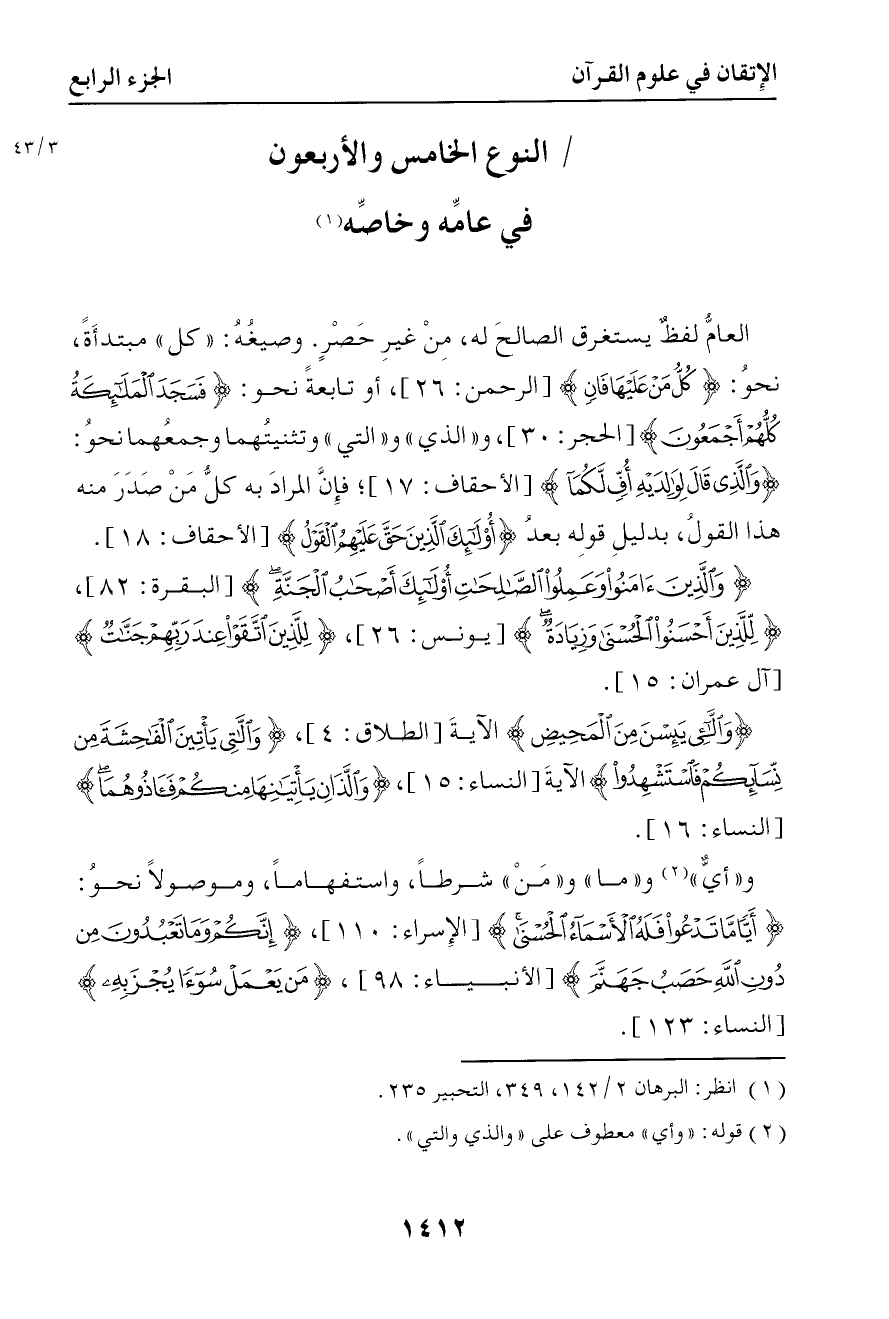 الإتقان في علوم القرآن
الجزء الرابع
٤٣/٣
/ النوع الخامس والأربعون
في عامِّه وخاصِّه(١)
العامُّ لفظٌ يستغرق الصالحَ له، مِنْ غيرِ حَصْرٍ. وصيغُهُ: «كل» مبتدأةً،
نحوُ: ﴿كُلُّ مَنْ عَلَيْهَا فَانٍ﴾ [الرحمن: ٢٦]، أو تابعةً نحو: ﴿فَسَجَدَ ٱلْمَلَٰٓئِكَةُ
كُلُّهُمْ أَجْمَعُونَ﴾ [الحجر: ٣٠]، و«الذي» و«التي» وتثنيتُهما وجمعُهما نحوُ:
﴿وَٱلَّذِى قَالَ لِوَٰلِدَيْهِ أُفٍّ لَّكُمَآ﴾ [الأحقاف: ١٧]؛ فإنَّ المرادَ به كلُّ مَنْ صَدَرَ منه
هذا القولُ، بدليلِ قوله بعدُ ﴿أُوْلَٰٓئِكَ ٱلَّذِينَ حَقَّ عَلَيْهِمُ ٱلْقَوْلُ﴾ [الأحقاف: ١٨].
﴿وَٱلَّذِينَ ءَامَنُواْ وَعَمِلُواْ ٱلصَّٰلِحَٰتِ أُوْلَٰٓئِكَ أَصْحَٰبُ ٱلْجَنَّةِۖ﴾ [البقرة: ٨٢]،
﴿لِّلَّذِينَ أَحْسَنُواْ ٱلْحُسْنَىٰ وَزِيَادَةٌۖ﴾ [يونس: ٢٦]، ﴿لِلَّذِينَ ٱتَّقَوْاْ عِندَ رَبِّهِمْ جَنَّٰتٌ﴾
[آل عمران: ١٥].
﴿وَٱلَّٰٓـِٔى يَئِسْنَ مِنَ ٱلْمَحِيضِ﴾ الآيةَ [الطلاق: ٤]، ﴿وَٱلَّٰتِى يَأْتِينَ ٱلْفَٰحِشَةَ مِن
نِّسَآئِكُمْ فَٱسْتَشْهِدُواْ﴾ الآيةَ [النساء: ١٥]، ﴿وَٱلَّذَانِ يَأْتِيَٰنِهَا مِنكُمْ فَـَٔاذُوهُمَاۖ﴾
[النساء: ١٦].
و«أيٌّ»(٢) و«ما» و«مَنْ» شرطاً، واستفهاماً، وموصولاً نحوُ:
﴿أَيًّا مَّا تَدْعُواْ فَلَهُ ٱلْأَسْمَآءُ ٱلْحُسْنَىٰۚ﴾ [الإسراء: ١١٠]، ﴿إِنَّكُمْ وَمَا تَعْبُدُونَ مِن
دُونِ ٱللَّهِ حَصَبُ جَهَنَّمَ﴾ [الأنبياء: ٩٨]، ﴿مَن يَعْمَلْ سُوٓءًا يُجْزَ بِهِۦ﴾
[النساء: ١٢٣].
(١) انظر: البرهان ١٤٢/٢، ٣٤٩، التحبير ٢٣٥.
(٢) قوله: «وأي» معطوف على «والذي والتي».
١٤١٢